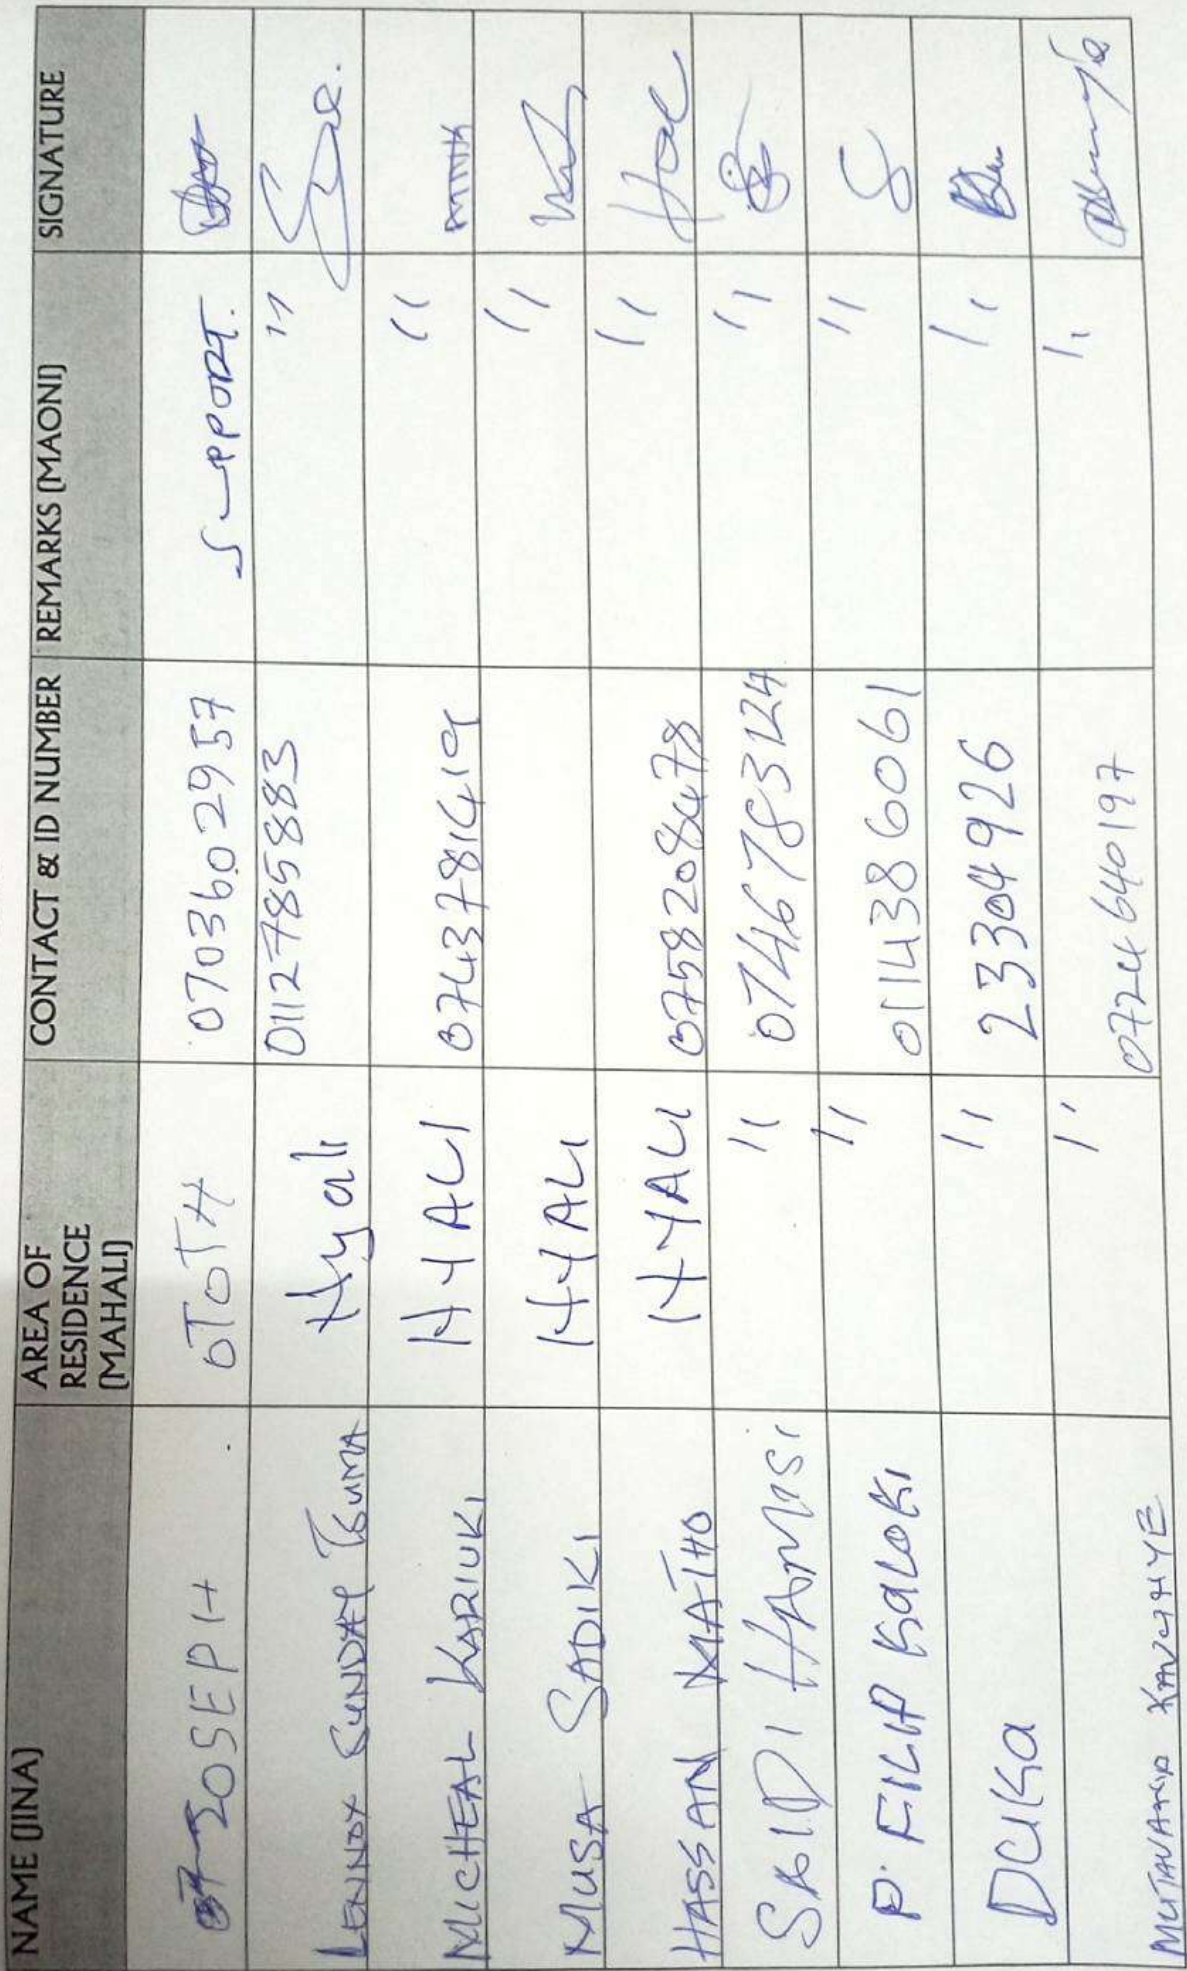 NAME (JINA) AREA OF RESIDENCE (MAHALI) CONTACT & ID NUMBER REMARKS (MAONI) SIGNATURE
JOSEPH OTOTH 0703602957 SUPPORT.
LENNOX SUNDAY TSUMA Hyali 0112785883 "
MICHEAL KARIUKI HYALI 0743781419 "
MUSA SADIKI HYALI "
HASSAN MATHO HYALI 0758208478 "
SAIDI HAMISI " 0746783124 "
P. FILIP KALOKI " 0114386061 "
" 23304926 "
" 0724640197 "